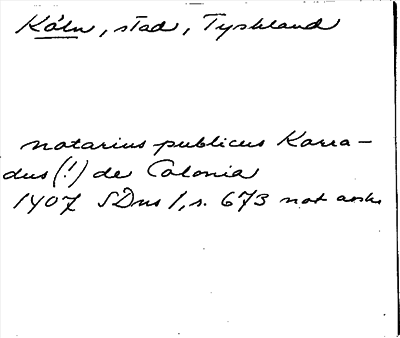 Köln, stad, Tyskland
notarius publicus Korra-
dus (!) de Colonia
1407 SDns 1, s. 673 not